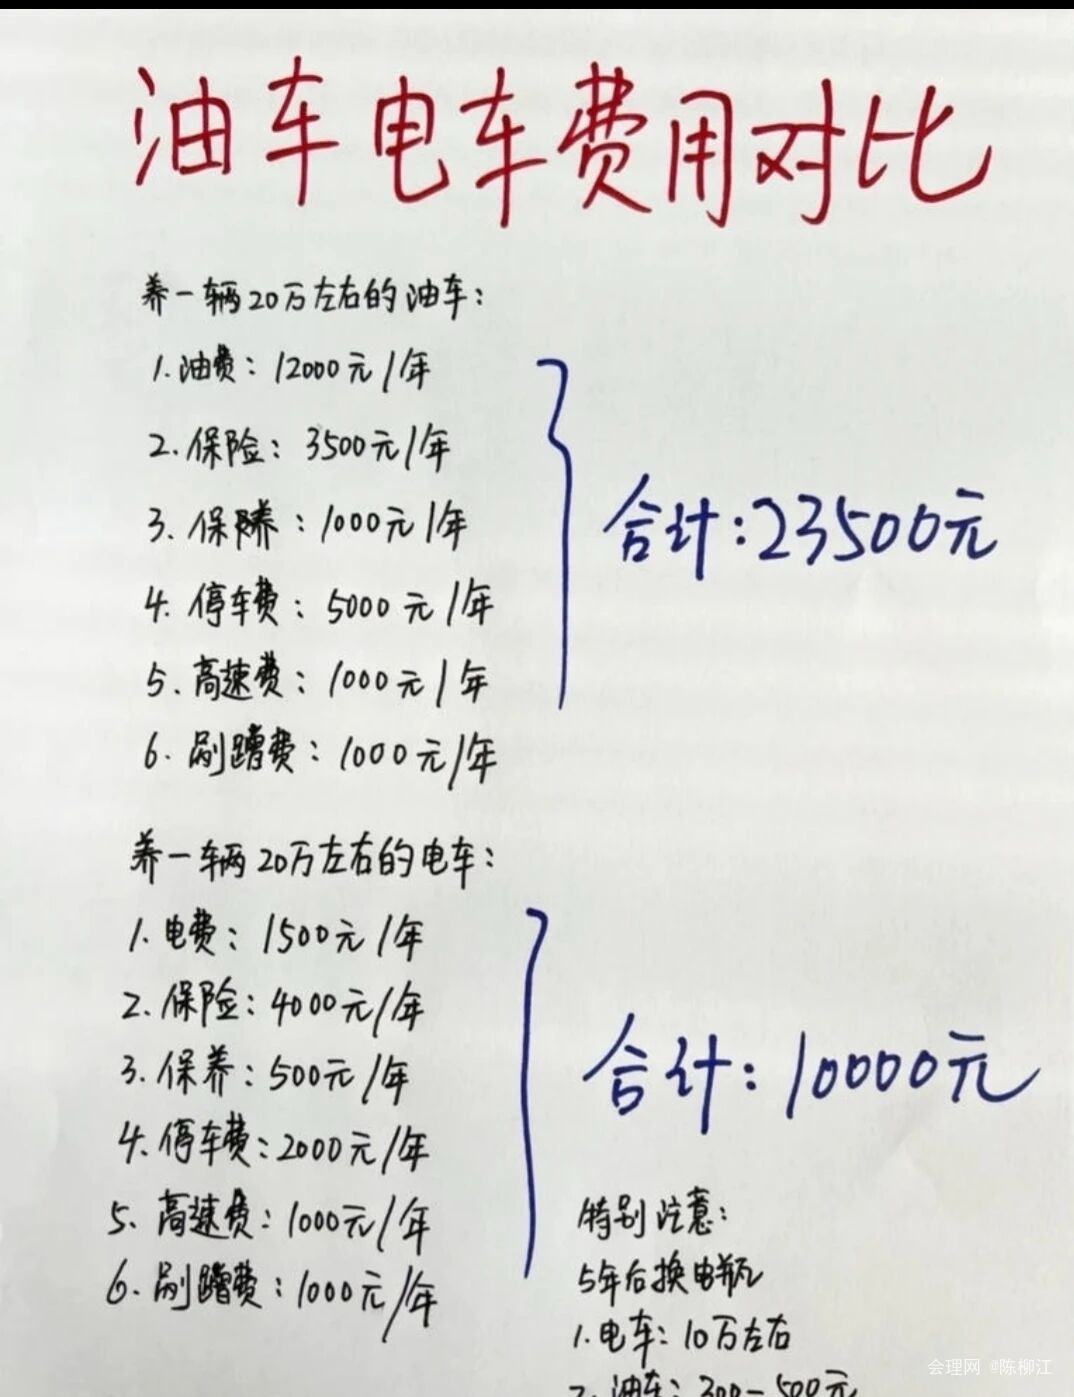 油车电车费用对比
养一辆20万左右的油车：
1.油费：12000元/年
2.保险：3500元/年
3.保养：1000元/年
4.停车费：5000元/年
5.高速费：1000元/年
6.剐蹭费：1000元/年
合计：23500元
养一辆20万左右的电车：
1.电费：1500元/年
2.保险：4000元/年
3.保养：500元/年
4.停车费：2000元/年
5.高速费：1000元/年
6.剐蹭费：1000元/年
合计：10000元
特别注意：
5年后换电瓶
1.电车：10万左右
2.油车：300-500元
会理网 @陈柳江